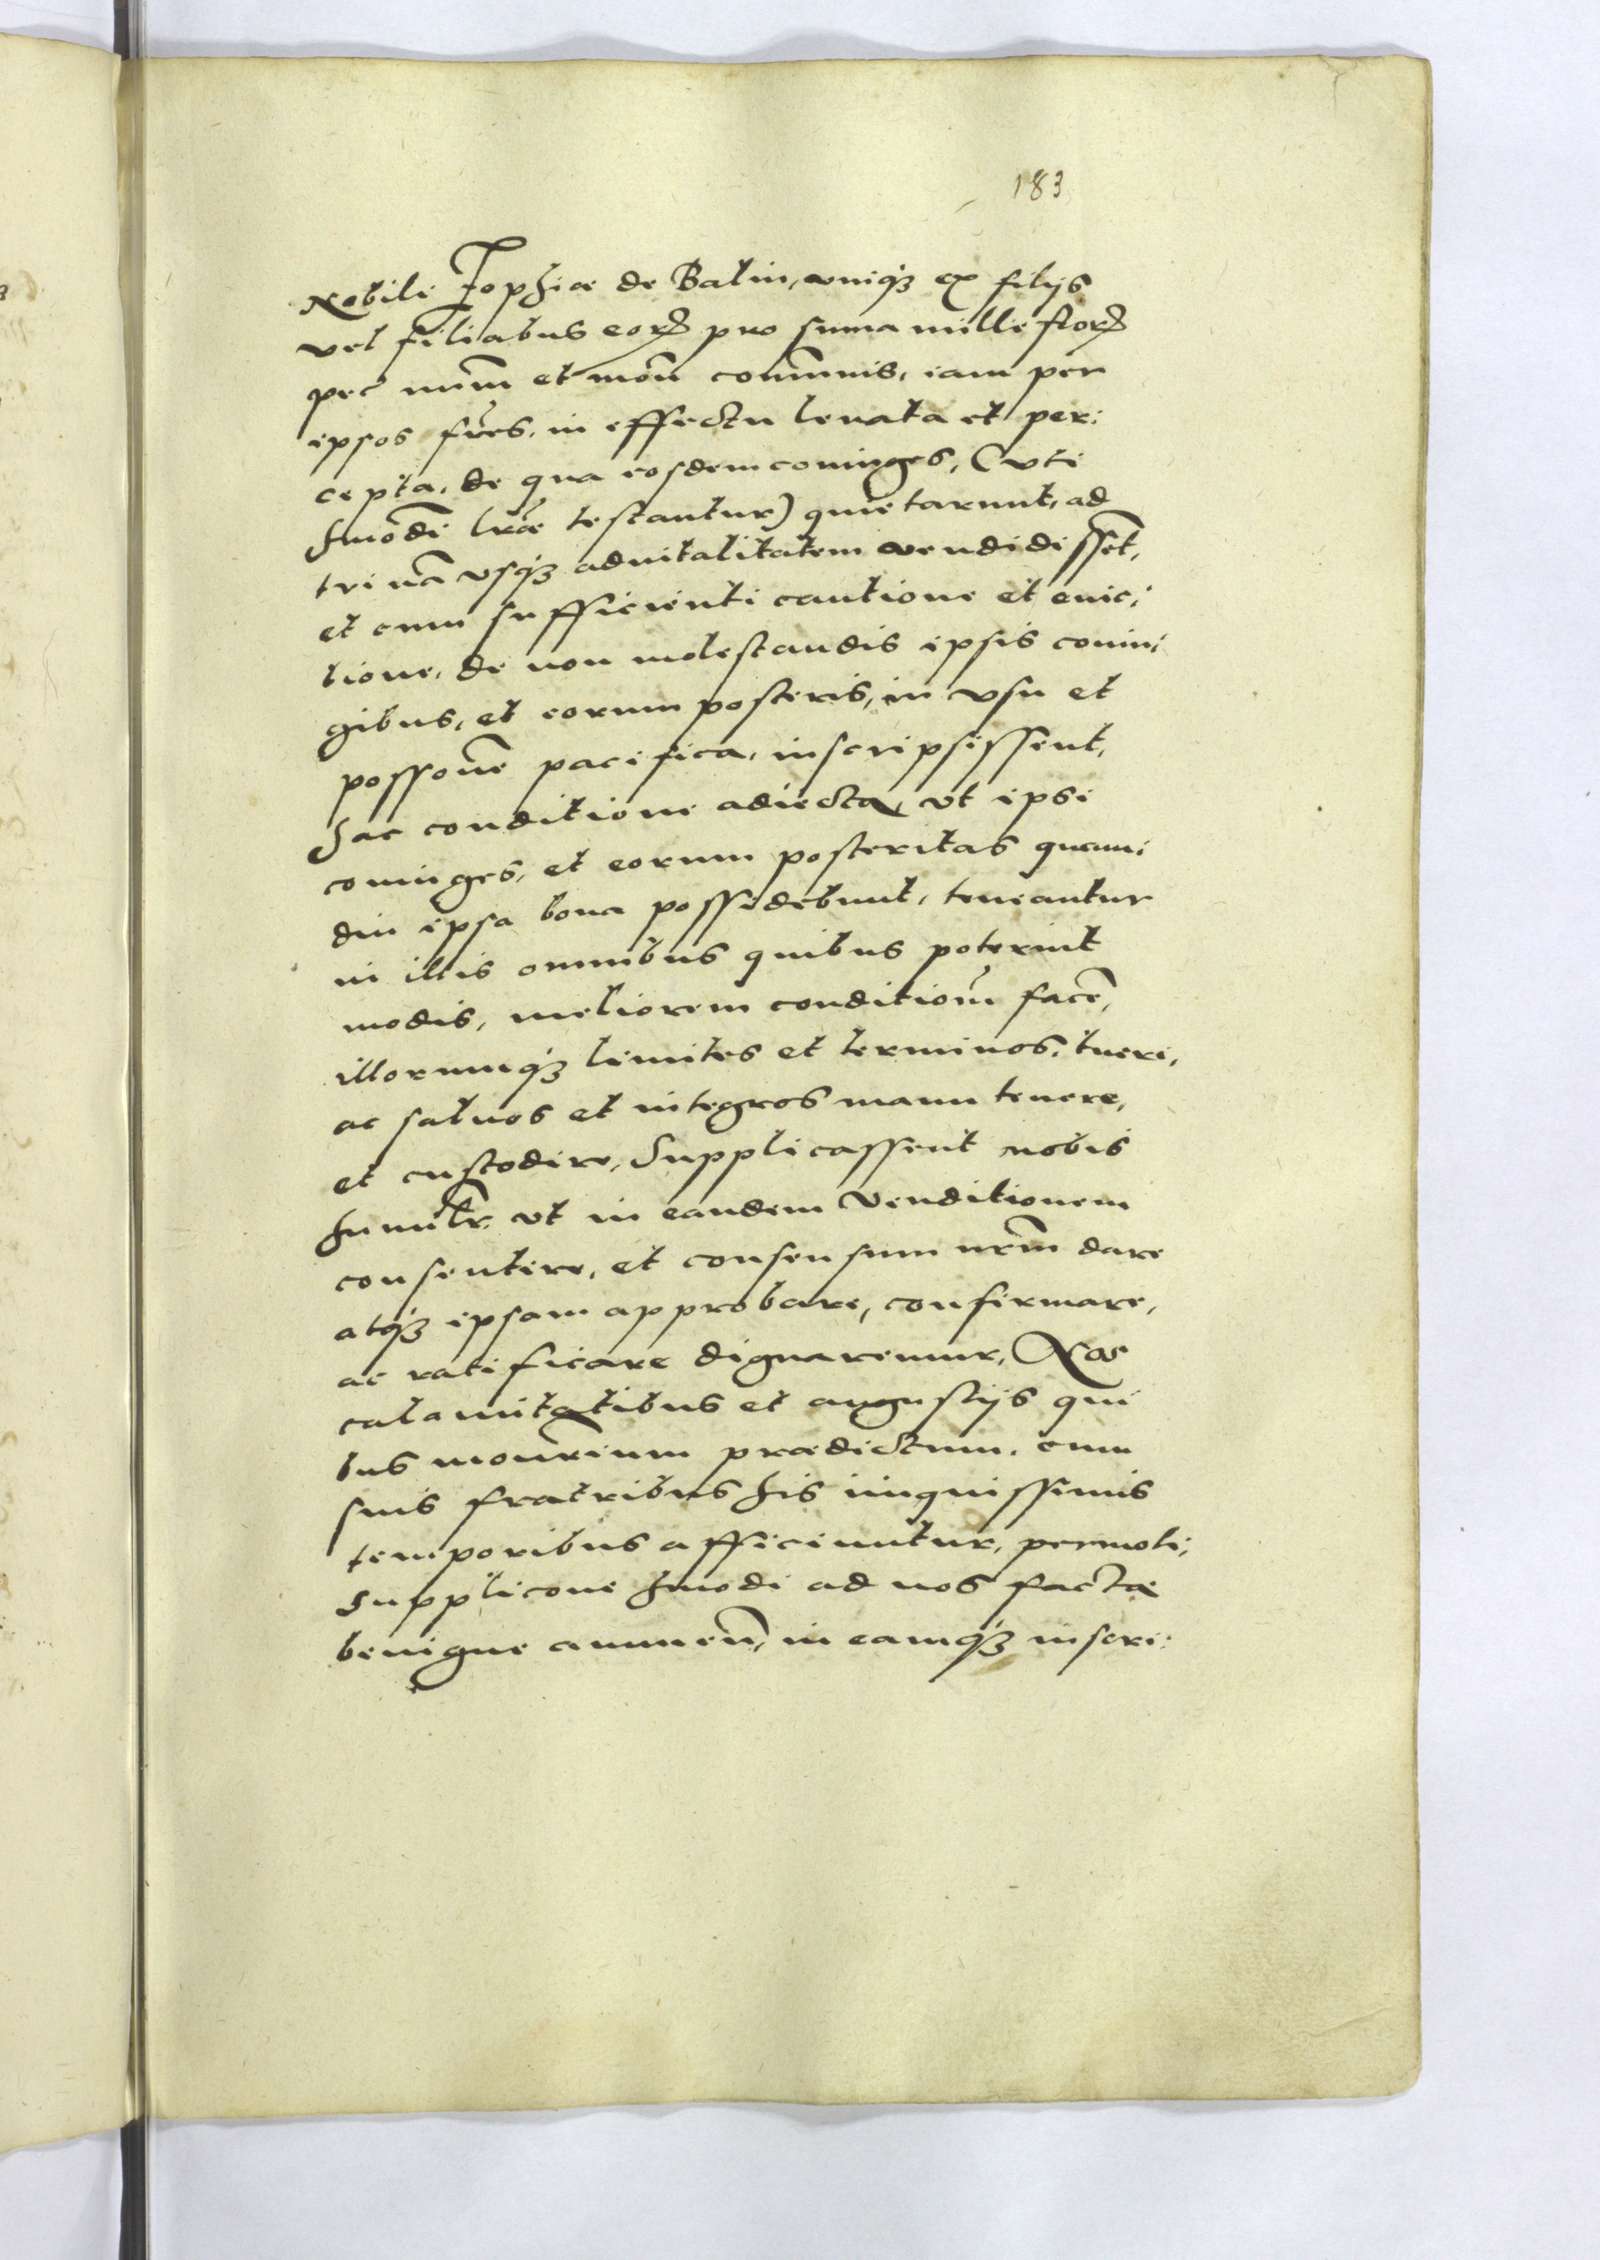 183
Nobile Sophiæ de Balin, vniq́ꝫ ex filijs
vel filiabus eorꝝ pro suma mille florꝝ
pec̃ num̃ et mon̄ coñmunis, iam per
ipsos fr̃es, in effectu leuata et per:
cepta, de qua eosdem coniuges, (vti
hmõdi lræ̃ testantur) quietarunt, ad
trinã vsq́ꝫ aduitalitatem vendidisset̃,
et cum sufficienti cautione et euic:
tione, de non molestandis ipsis coniu:
gibus, et eorum posteris, in vsu et
possonẽ pacifica, inscripsissent,
hac conditione adiecta, vt ipsi
coniuges, et eorum posteritas quam:
diu ipsa bona possidebunt, teneantur
in illis omnibus quibus poterint
modis, meliorem conditionẽ facẽ,
illorumq́ꝫ limites et terminos, tueri,
ac saluos et integros manu tenere,
et custodire, Supplicassent nobis
humilr̃ vt in eandem Venditionem
consentire, et consensum nr̃m dare
atq́ꝫ ipsam approbare, confirmare,
ac ratificare dignaremur, Nos
calamitatibus et angustijs qui
bus monrĩum prædictum, cum
suis fratribus his iniquissimis
temporibus afficiuntur, permoti,
supplicone hmodi ad nos factæ
benigne annuen̄, in eamq́ꝫ inscri: